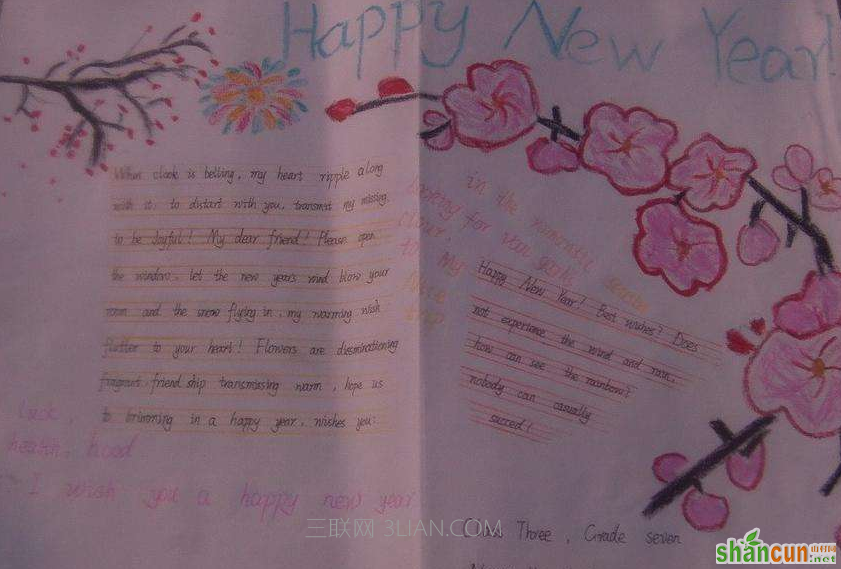 Happy New Year!
When clock is belling, my heart ripple along
with it, to distart with you, transmit my missing.
to be Joyful! My dear friend! Please open
the window, let the new year's wind blow your
room and the snow flying in, my warming wish
flutter to your heart! Flowers are disminationg
fragrant friend ship transmissing warm, hope us
to brimming in a happy year, wishes you:
Luck,
heaten, hood
I wish you a happy new year
in the
looking for
My
Happy New Year! Best wishes? Does
not experiance the wind and rain,
how can see the rainbow?
nobody can casually
succed!
Class Three, Grade seven
三联网 3LIAN.COM
shancun
山村网
.net